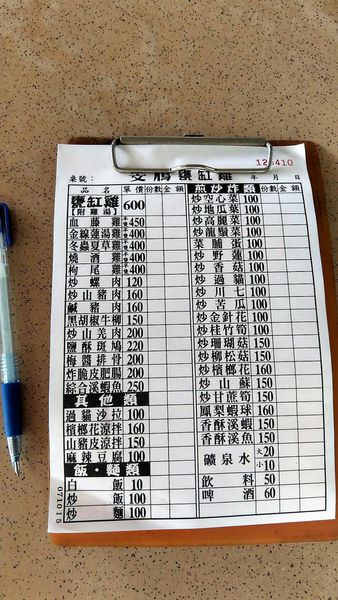 甕缸雞
126410
桌號： 年 月 日
品名 單價 份數 金額
甕缸雞 600
【附雞湯】
血藤雞 半隻450
金線蓮湯雞 半隻400
冬蟲夏草雞 半隻400
燒酒雞 半隻400
枸尾雞 半隻400
炒螺肉 120
炒山豬肉 160
鹹豬肉 160
黑胡椒牛柳 150
炒山羌肉 200
鹽酥斑鳩 220
梅醬排骨 200
炸脆皮肥腸 200
綜合溪蝦魚 250
其他類
過貓沙拉 100
檳榔花涼拌 160
山豬皮涼拌 150
麻辣豆腐 100
飯‧麵類
白飯 10
炒飯 100
炒麵 100
071015
煎炒炸類 份數 金額
炒空心菜 100
炒地瓜葉 100
炒高麗菜 100
炒龍鬚菜 100
菜脯蛋 100
炒野蓮 100
炒香菇 100
炒過貓 100
炒川七 100
炒苦瓜 100
炒金針花 100
炒桂竹筍 100
炒珊瑚菇 150
炒柳松菇 150
炒檳榔花 160
炒山蘇 150
炒甘蔗筍 150
鳳梨蝦球 160
香酥溪蝦 150
香酥溪魚 150
礦泉水 大20
小10
飲料 50
啤酒 60